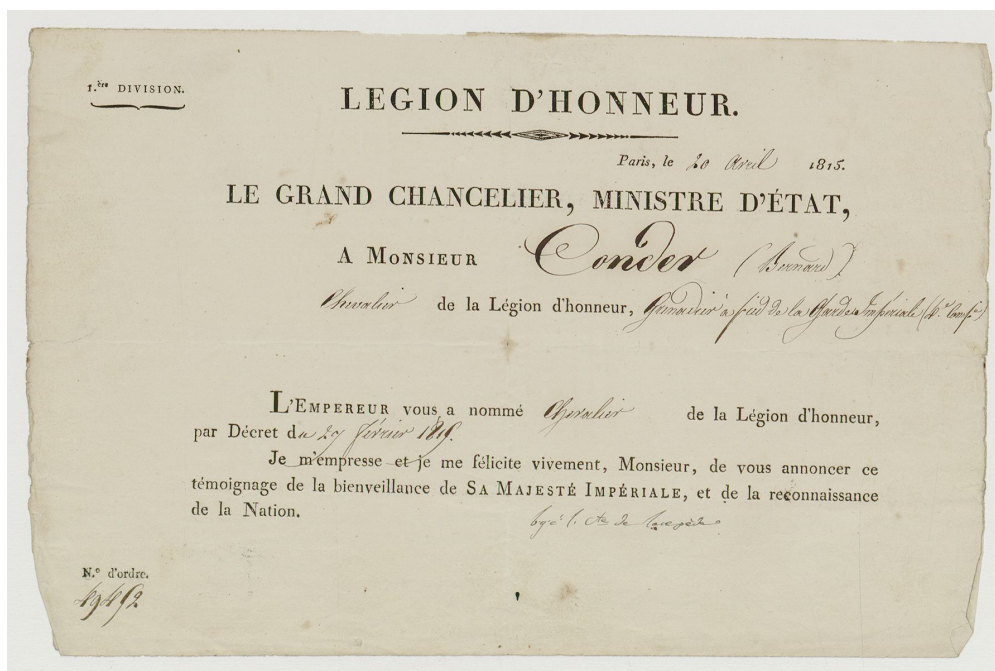 1.ère DIVISION.
LEGION D'HONNEUR.
Paris, le 20 avril 1815.
LE GRAND CHANCELIER, MINISTRE D'ÉTAT,
A MONSIEUR Conder (Bernard)
Chevalier de la Légion d'honneur, Grenadier à pied de la Garde Impériale
L'EMPEREUR vous a nommé Chevalier de la Légion d'honneur,
par Décret du 27 février
Je m'empresse et je me félicite vivement, Monsieur, de vous annoncer ce
témoignage de la bienveillance de SA MAJESTÉ IMPÉRIALE, et de la reconnaissance
de la Nation.
le Cte de Lacepède
N.º d'ordre.